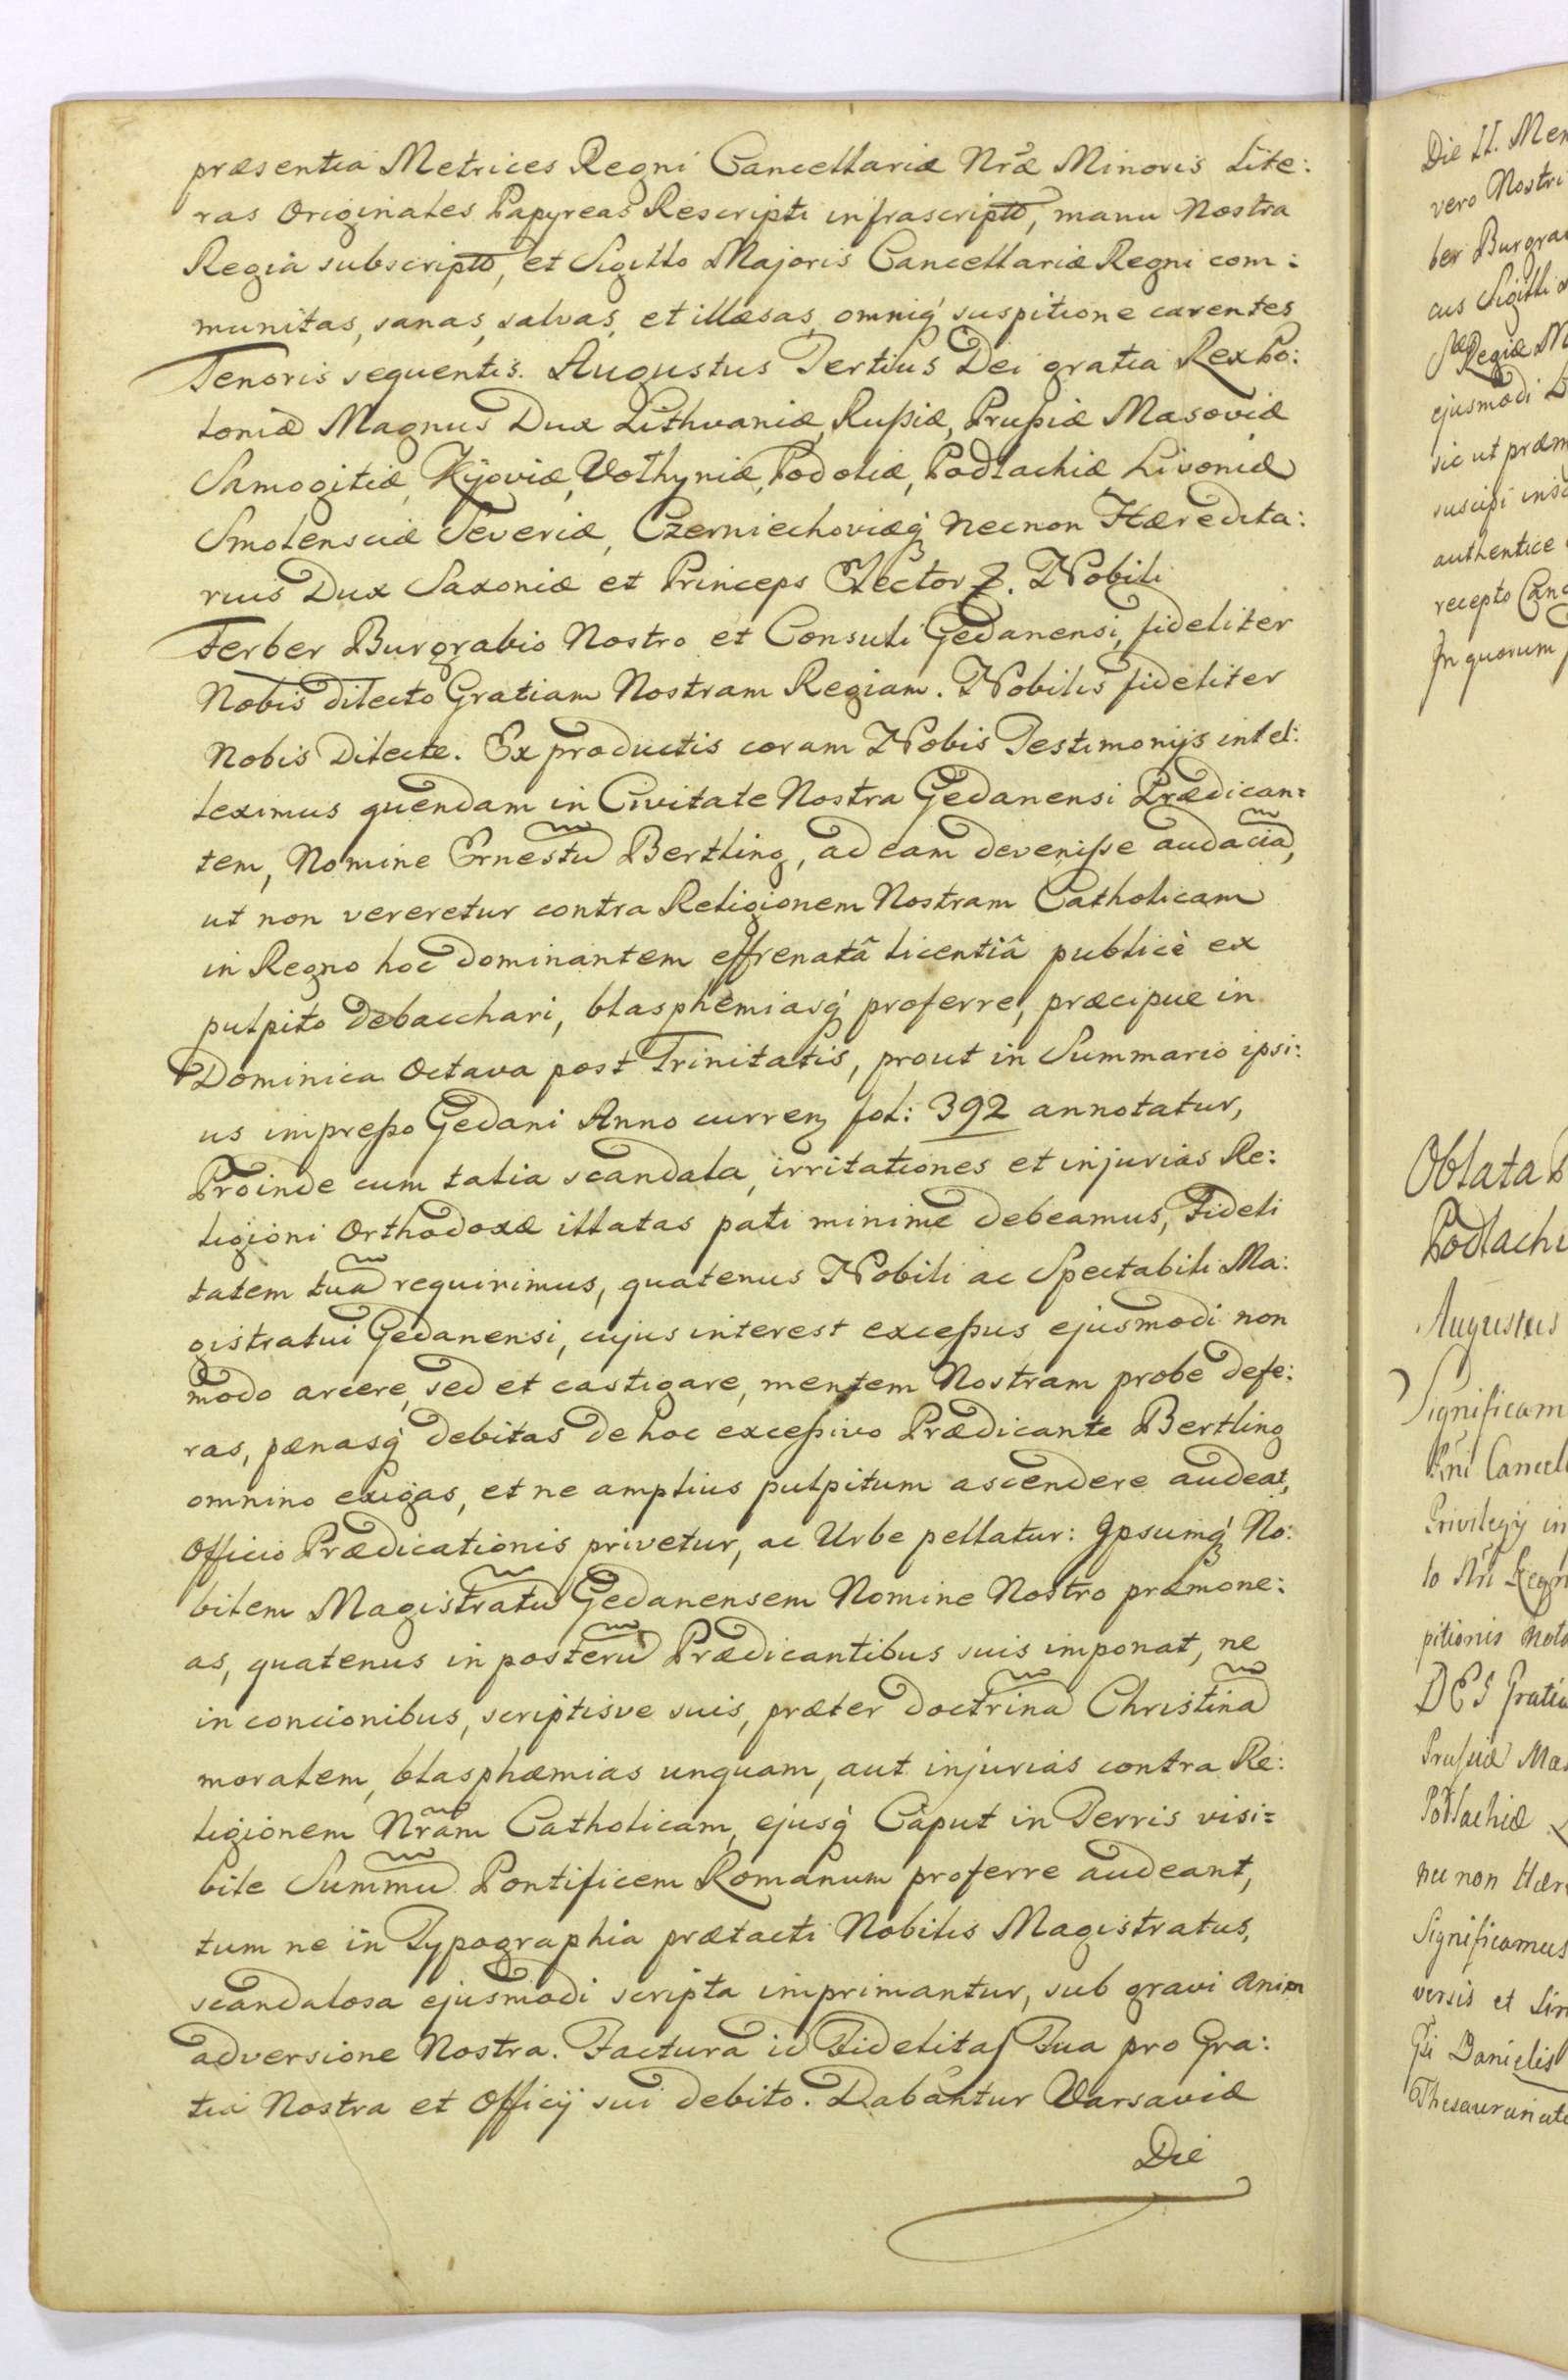 præsentia Metrices Regni Cancellariæ Nræ Minoris Lite:
ras Originales Papyreas Rescripti infrascripti, manu Nostra
Regia subscriptas, et Sigillo Majoris Cancellariæ Regni com:
munitas, sanas, salvas, et illæsas, omniq́ suspitione carentes
Tenoris sequentis. Augustus Tertius Dei gratia Rex Po:
loniæ Magnus Dux Lithvaniæ, Rußiæ, Prußiæ Masoviæ
Samogitiæ, Kijoviæ, Volhyniæ, Podoliæ, Podlachiæ Livoniæ
Smolensciæ Severiæ, Czerniechoviæq́ necnon Hæredita:
rius Dux Saxoniæ et Princeps Elector. Nobili
Ferber Burgrabio Nostro et Consuli Gedanensi, fideliter
Nobis dilecto Gratiam Nostram Regiam. Nobilis fideliter
Nobis Dilecte. Ex productis coram Nobis Testimonijs intel:
leximus quendam in Civitate Nostra Gedanensi Prædican=
tem, Nomine Ernestũ Bertling, ad eam devenisse audaciã,
ut non vereretur contra Religionem Nostram Catholicam
in Regno hoc dominantem effrenatâ licentiâ publicè ex
pulpito debacchari, blasphemiasq́ proferre, præcipue in
Dominica Octava post Trinitatis, prout in Summario ipsi:
us impreßo Gedani Anno curren fol: 392 annotatur,
Proinde cum talia scandala, irritationes et injurias Re:
ligioni Orthodoxæ illatas pati minime debeamus, Fideli
tatem tuã requirimus, quatenus Nobili ac Spectabili Ma:
gistratui Gedanensi, cujus interest exceßus ejusmodi non
modo arcere, sed et castigare, mentem Nostram probe defe:
ras, pænasq́ debitas de hoc exceßivo Prædicante Bertling
omnino exigas, et ne amplius pulpitum ascendere audeat,
Officio Prædicationis privetur, ac Urbe pellatur: Ipsumq́ No:
bilem Magistratũ Gedanensem Nomine Nostro præmone:
as, quatenus in posterũ Prædicantibus suis imponat, ne
in concionibus, scriptisve suis, præter doctrinã Christinã
moralem, blasphæmias unquam, aut injurias contra Re:
ligionem Nrãm Catholicam, ejusq́ Caput in Terris visi=
bile Summũ Pontificem Romanum proferre audeant,
tum ne in Typographia prætacti Nobilis Magistratus,
scandalosa ejusmodi scripta imprimantur, sub gravi anim
adversione Nostra. Factura id Fidelitas Tua pro Gra:
tia Nostra et Officij sui debito. Dabantur Varsaviæ
Die
Die II. Men
vero Nostri
ber Burgra
cus Sigilli
Regiæ M
ejusmodi L
sic ut præm
suscipi
authentice
recepto Canc
In quorum
Oblata
Podlachi
Augustus
Significam
Cancel
Privilegij in
Regn
pitionis
DEI Gratia
Mas
Podlachiæ
nec non Hær
Significamus
versis et Sin
Danielis
Thesaurariat